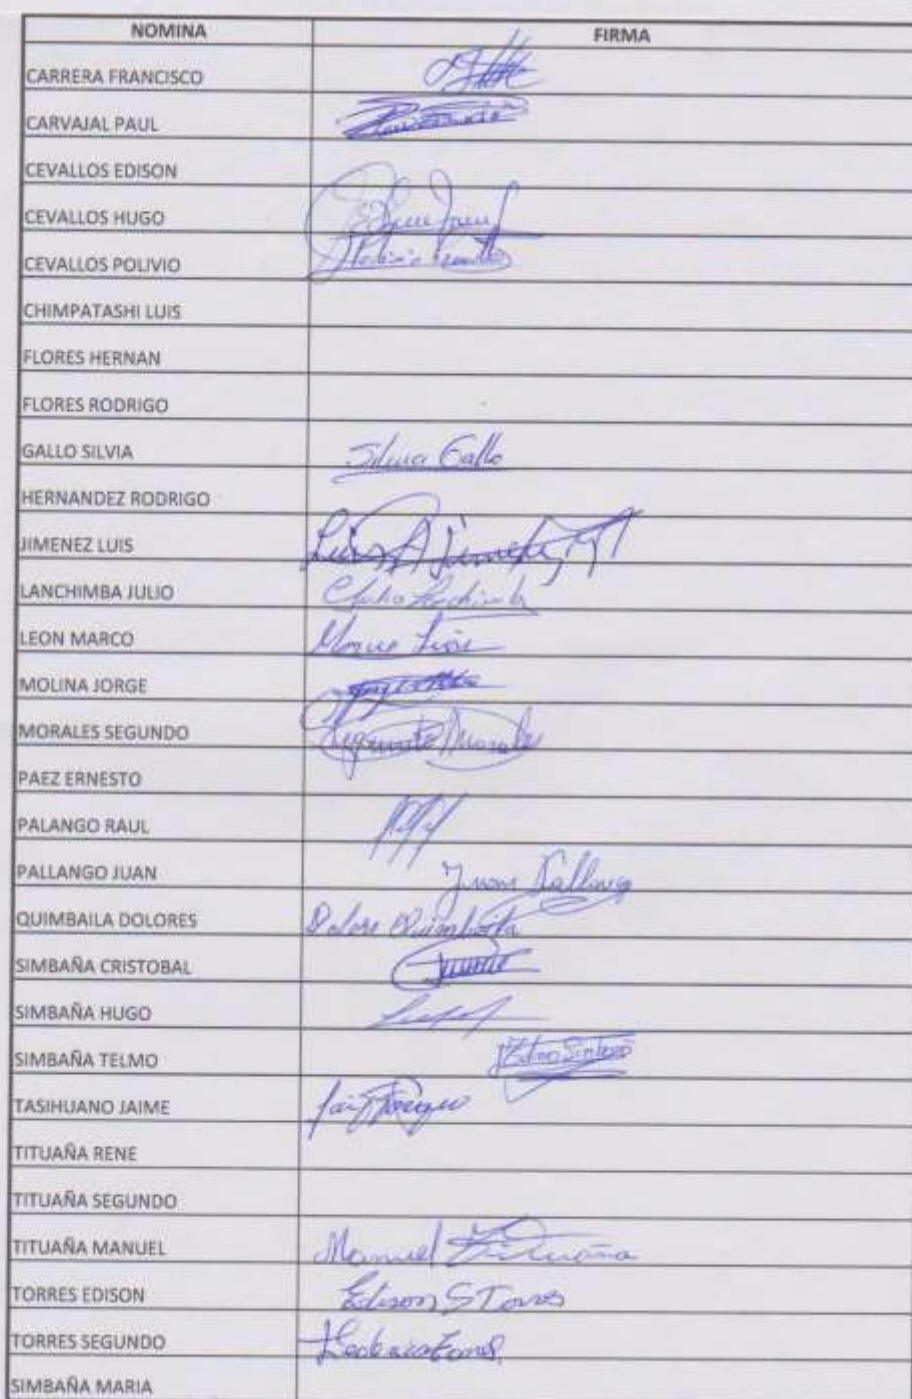 NOMINA FIRMA
CARRERA FRANCISCO
CARVAJAL PAUL
CEVALLOS EDISON
CEVALLOS HUGO
CEVALLOS POLIVIO
CHIMPATASHI LUIS
FLORES HERNAN
FLORES RODRIGO
GALLO SILVIA Silvia Gallo
HERNANDEZ RODRIGO
JIMENEZ LUIS Luis A Jimenez
LANCHIMBA JULIO
LEON MARCO
MOLINA JORGE
MORALES SEGUNDO Segundo Morales
PAEZ ERNESTO
PALANGO RAUL
PALLANGO JUAN Juan Pallango
QUIMBAILA DOLORES
SIMBAÑA CRISTOBAL
SIMBAÑA HUGO
SIMBAÑA TELMO
TASIHUANO JAIME
TITUAÑA RENE
TITUAÑA SEGUNDO
TITUAÑA MANUEL Manuel Tituaña
TORRES EDISON Edison S Torres
TORRES SEGUNDO
SIMBAÑA MARIA